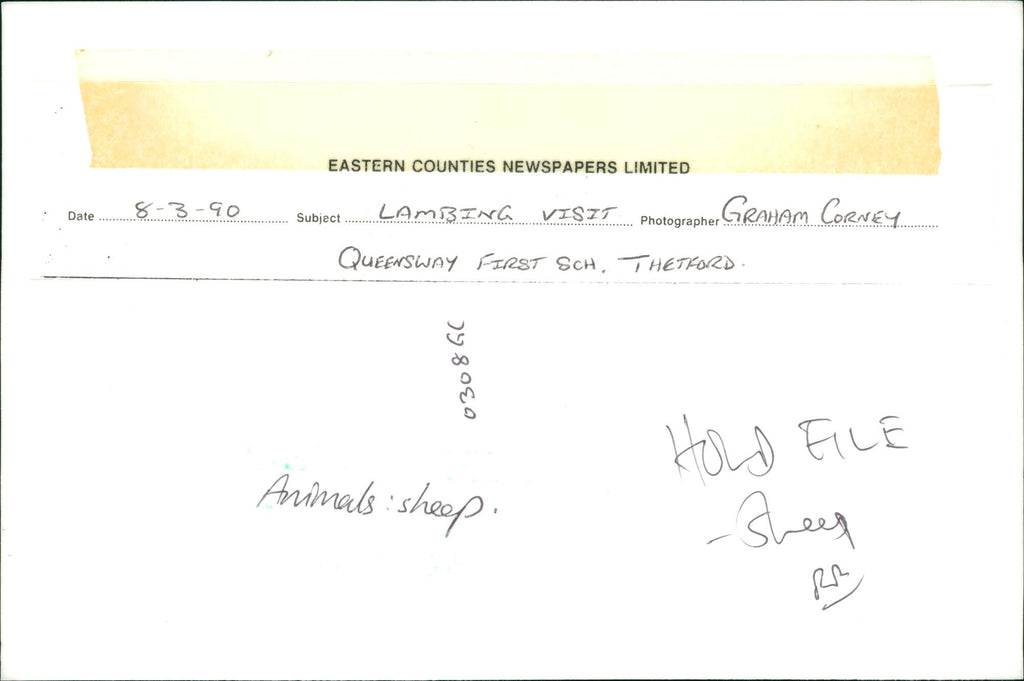 EASTERN COUNTIES NEWSPAPERS LIMITED
Date 8-3-90 Subject LAMBING VISIT Photographer GRAHAM CORNEY
QUEENSWAY FIRST SCH. THETFORD.
0308GC
HOLD FILE
Animals: sheep.
- Sheep
RR